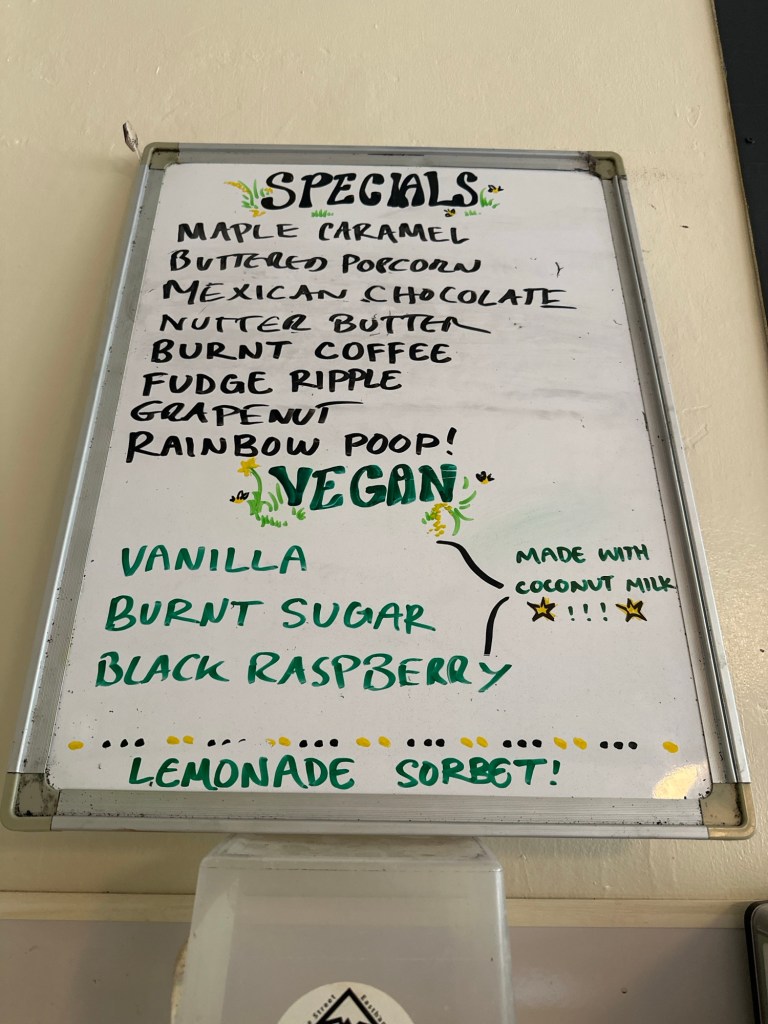 SPECIALS
MAPLE CARAMEL
BUTTERED POPCORN
MEXICAN CHOCOLATE
NUTTER BUTTER
BURNT COFFEE
FUDGE RIPPLE
GRAPENUT
RAINBOW POOP!
VEGAN
VANILLA
BURNT SUGAR
BLACK RASPBERRY
MADE WITH
COCONUT MILK
!!!
LEMONADE SORBET!
Street